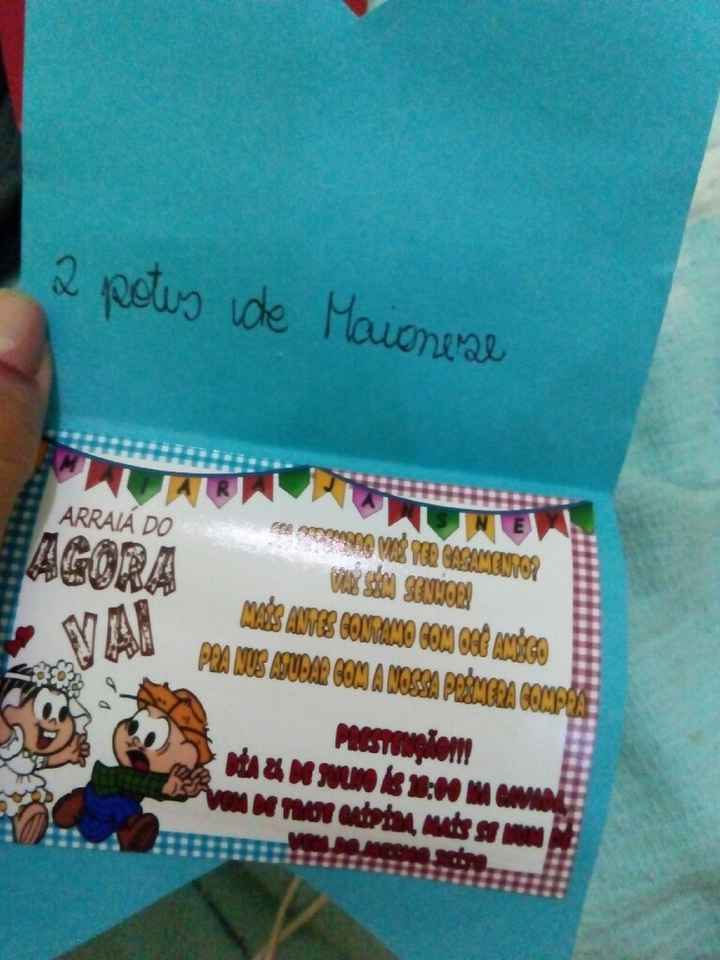 2 potus de Maioneze
MAIARA JANSNEY
ARRAIÁ DO
AGORA
VAI
EM SETEMBRO VAI TER CASAMENTO?
VAI SIM SENHOR!
MAIS ANTES CONTAMO COM OCÊ AMIGO
PRA NUS AJUDAR COM A NOSSA PRIMERA COMPRA
PRESTENÇÃO!!!
DIA 24 DE JULHO ÁS 18:00 NA
VEM DE TRAJE CAIPIRA, MAIS SE NUM DÉ
VEM DO MESMO JEITO